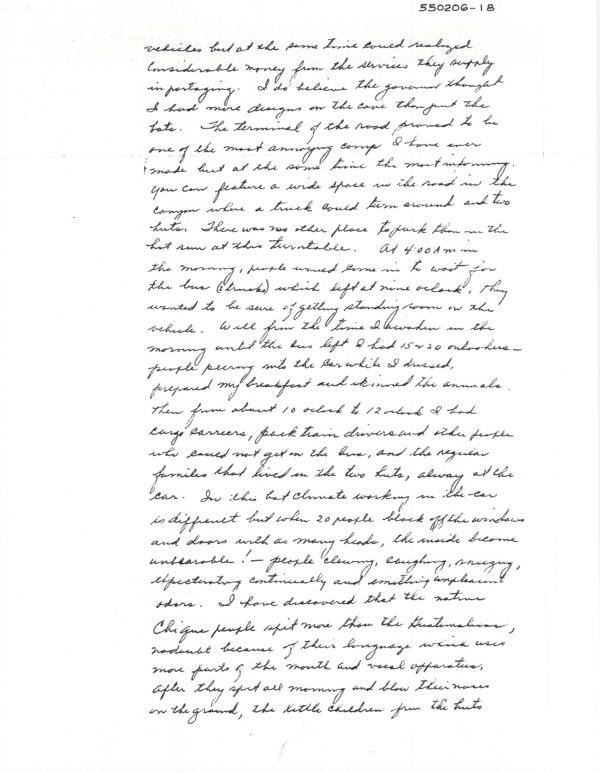 550206-18
vehicles but at the same time could realized
considerable money from the services they supply
in portaging. I do believe the governor thought
I had more designs on the cave than just the
bats. The terminal of the road proved to be
one of the most annoying camp I have ever
made but at the same time the most informing.
You can feature a wide space in the road in the
canyon where a truck could turn around and two
huts. There was no other place to park than in the
hot sun at this turntable. At 4:00 AM in
the morning, people would come in to wait for
the bus (trucks) which left at nine oclock. They
wanted to be sure of getting standing room on the
vehicle. Well from the time I awoken in the
morning until the bus left I had 15 or 20 onlookers –
people peering into the car while I dressed,
prepared my breakfast and skinned the animals.
Then from about 10 oclock to 12 oclock I had
cargo carriers, pack train drivers and other people
who could not get on the bus, and the regular
families that lived in the two huts, alway at the
car. In this hot climate working in the car
is difficult but when 20 people block off the windows
and doors with as many heads, the inside become
unbearable! – people chewing, coughing, sneezing,
expectorating continually and emitting unpleasant
odors. I have discovered that the native
people spit more than the Guatemalans,
nodoubt because of their language which uses
more parts of the mouth and vocal apparatus.
After they spit all morning and blow their noses
on the ground, the little children from the huts